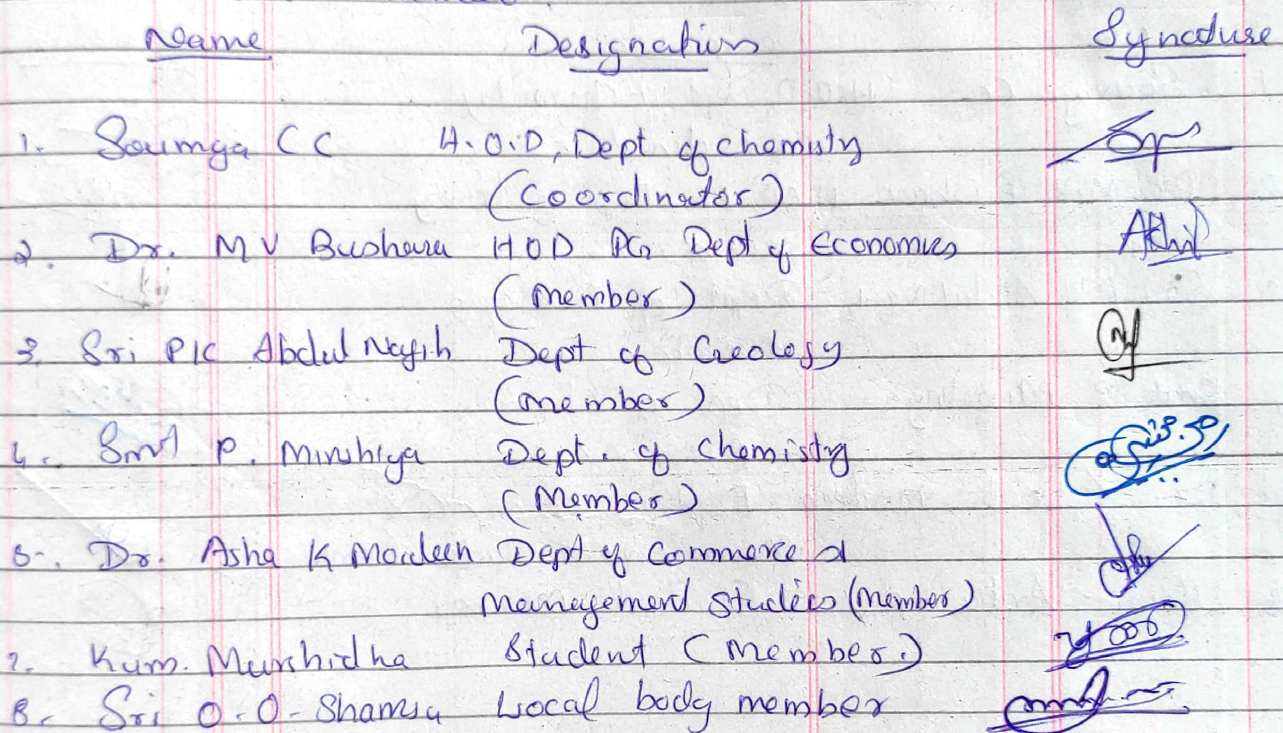 Name Designation Synature
1. Soumya CC H.O.D, Dept of chemistry
(Coordinator)
2. Dr. M V Bushara HOD PG Dept of Economics
(Member)
3. Sri PK Abdul Nayib Dept of Geology
(member)
4. Smt P. Minshiya Dept. of Chemistry
(Member)
5. Dr. Asha K Moideen Dept of Commerce &
Management Studies (Member)
7. Kum. Murshidha Student (Member)
8. Sri O.O. Shamsu Local body member